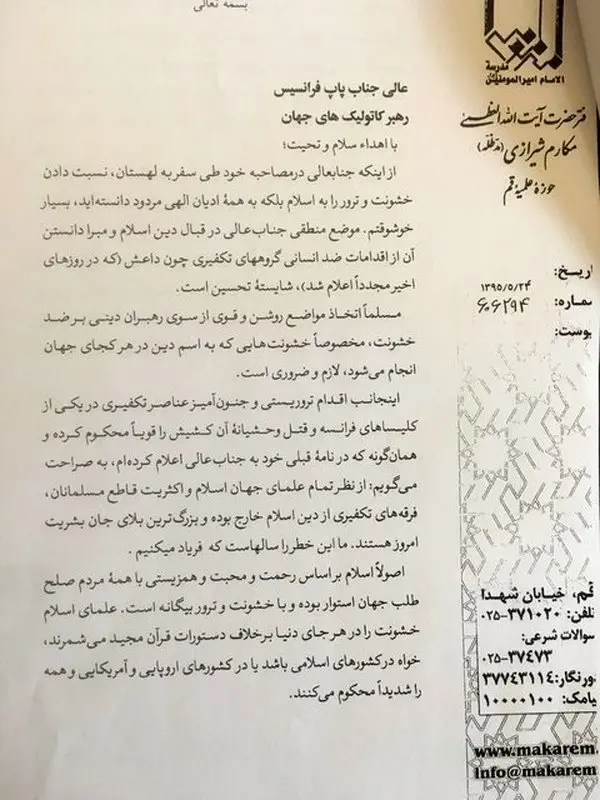 بسمه تعالی
مدرسة
الامام امیرالمومنین
دفتر حضرت آیت الله العظمی
مکارم شیرازی (مدظله)
حوزه علمیه قم
تاریخ:
۱۳۹۵/۵/۲۴
شماره:
۶۰۶۲۹۴
پیوست:
عالی جناب پاپ فرانسیس
رهبر کاتولیک های جهان
با اهداء سلام و تحیت؛
از اینکه جنابعالی درمصاحبه خود طی سفر به لهستان، نسبت دادن
خشونت و ترور را به اسلام بلکه به همۀ ادیان الهی مردود دانسته‌اید، بسیار
خوشوقتم. موضع منطقی جناب‌عالی در قبال دین اسلام و مبرا دانستن
آن از اقدامات ضد انسانی گروههای تکفیری چون داعش (که در روزهای
اخیر مجدداً اعلام شد)، شایستۀ تحسین است.
مسلماً اتخاذ مواضع روشن و قوی از سوی رهبران دینی بر ضد
خشونت، مخصوصاً خشونت‌هایی که به اسم دین در هر کجای جهان
انجام می‌شود، لازم و ضروری است.
اینجانب اقدام تروریستی و جنون‌آمیز عناصر تکفیری در یکی از
کلیساهای فرانسه و قتل وحشیانۀ آن کشیش را قویاً محکوم کرده و
همان‌گونه که در نامۀ قبلی خود به جناب‌عالی اعلام کرده‌ام، به صراحت
می‌گویم: از نظر تمام علمای جهان اسلام و اکثریت قاطع مسلمانان،
فرقه‌های تکفیری از دین اسلام خارج بوده و بزرگ‌ترین بلای جان بشریت
امروز هستند. ما این خطر را سالهاست که فریاد میکنیم .
اصولاً اسلام بر اساس رحمت و محبت و همزیستی با همۀ مردم صلح
طلب جهان استوار بوده و با خشونت و ترور بیگانه است. علمای اسلام
خشونت را در هر جای دنیا برخلاف دستورات قرآن مجید می‌شمرند،
خواه در کشورهای اسلامی باشد یا در کشورهای اروپایی و آمریکایی و همه
را شدیداً محکوم می‌کنند.
قم، خیابان شهدا
تلفن: ۳۷۱۰۲۰-۰۲۵
سوالات شرعی:
۰۲۵-۳۷۴۷۳
دورنگار: ۳۷۷۴۳۱۱۴
پیامک: ۱۰۰۰۰۱۰۰
www.makarem.
info@makarem